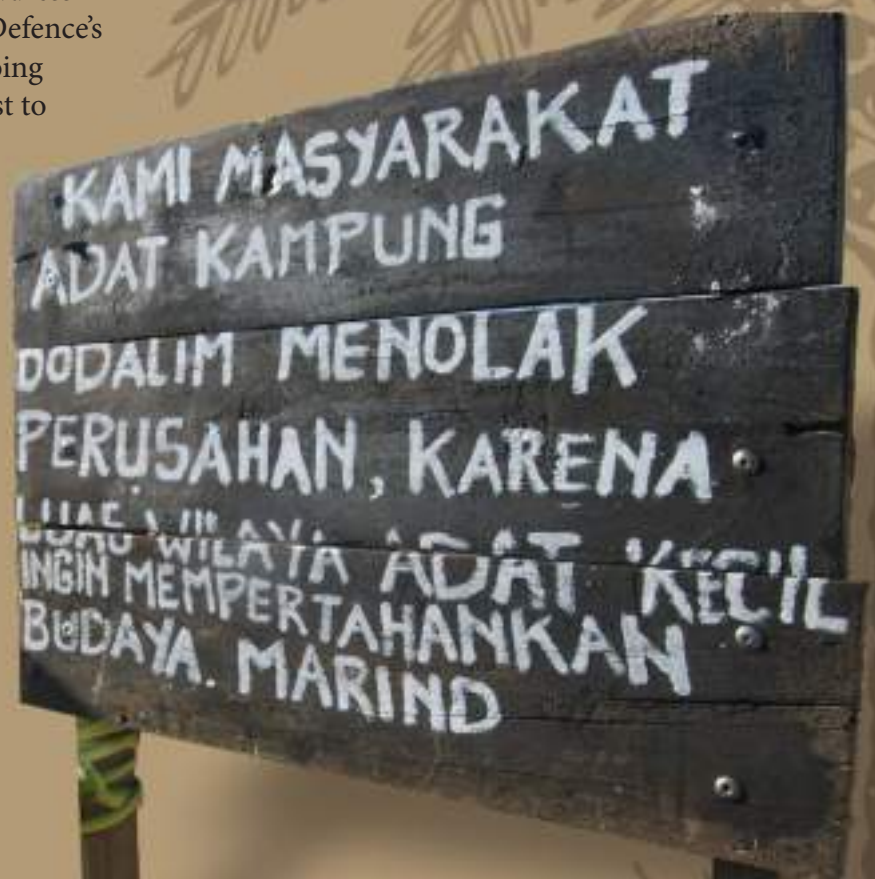 Defence's
st to
KAMI MASYARAKAT
ADAT KAMPUNG
DODALIM MENOLAK
PERUSAHAN, KARENA
LUAS WILAYA ADAT KECIL
INGIN MEMPERTAHANKAN
BUDAYA. MARIND